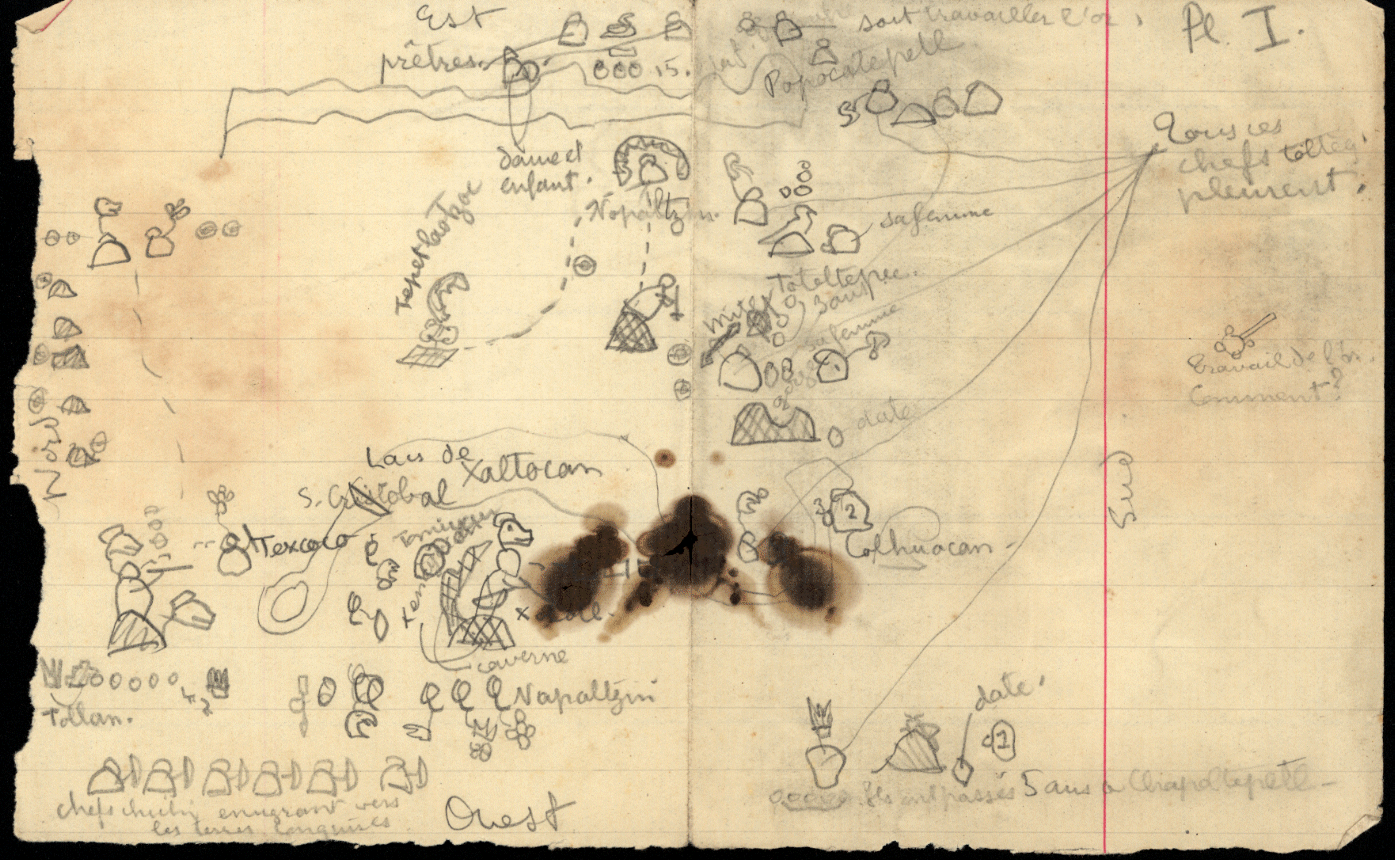 Est
prêtres.
15.
sait travailler l'or,
Pl. I.
Popocatepetl
Tous ces
chefs toltèq.
pleurent.
dame et
enfant.
Nopaltzin.
Tepetlaotzoc
sa femme
Tototepec.
3 ans
sa femme
Travail de l'or.
Comment?
date
Nord
Lacs de
Xaltocan
S. Cristobal
Sud
Texcoco
2
Colhuacan
caverne
Napaltzin
Tollan.
date.
1
Ils ont passés 5 ans a Chapoltepetl
chefs chichi. emigrant vers
les terres
Ouest